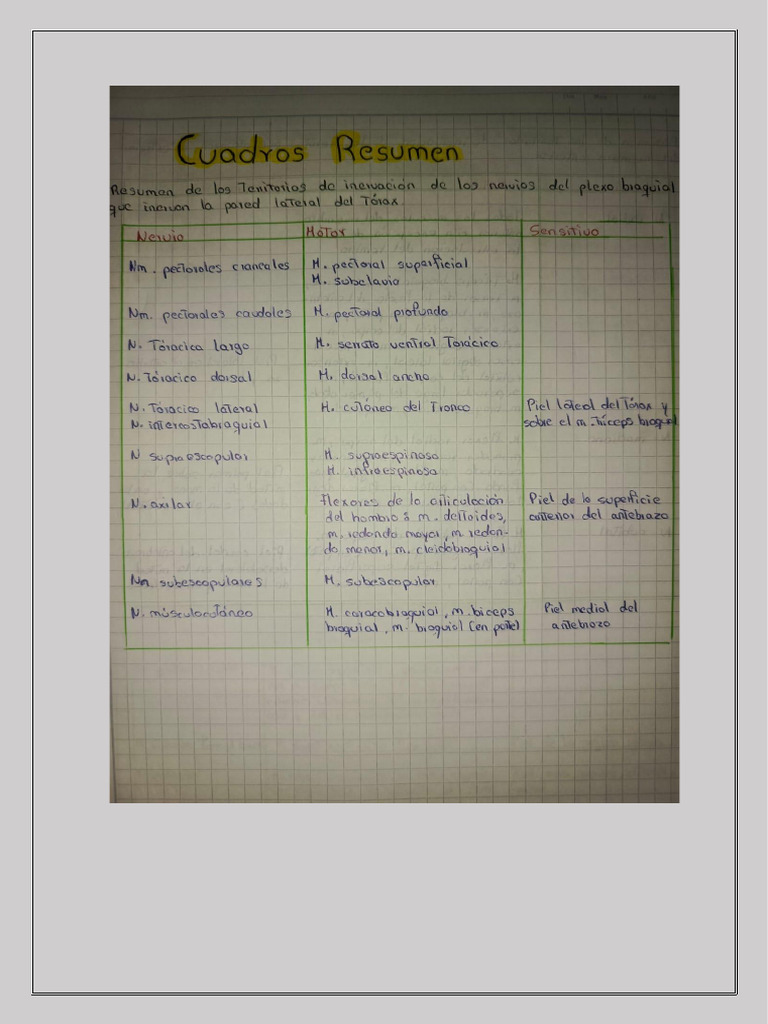 Cuadros Resumen
Resumen de los Territorios de inervación de los nervios del plexo braquial
que inervan la pared lateral del Tórax
Nervio Motor Sensitivo
Nm. pectorales craneales M. pectoral superficial
M. subclavio
Nm. pectorales caudales M. pectoral profundo
N. Tóracico largo M. serrato ventral Torácico
N. Tóracico dorsal M. dorsal ancho
N. Tóracico lateral M. cutáneo del Tronco Piel lateral del Tórax y
N. intercostobraquial sobre el m. tríceps braquial
N supraescapular M. supraespinoso
M. infraespinoso
N. axilar Flexores de la articulación Piel de la superficie
del hombro: m. deltoides, anterior del antebrazo
m. redondo mayor, m. redon-
do menor, m. cleidobraquial
Nn. subescapulares M. subescapular
N. músculocutáneo M. coracobraquial, m. biceps Piel medial del
braquial, m. braquial (en parte) antebrazo